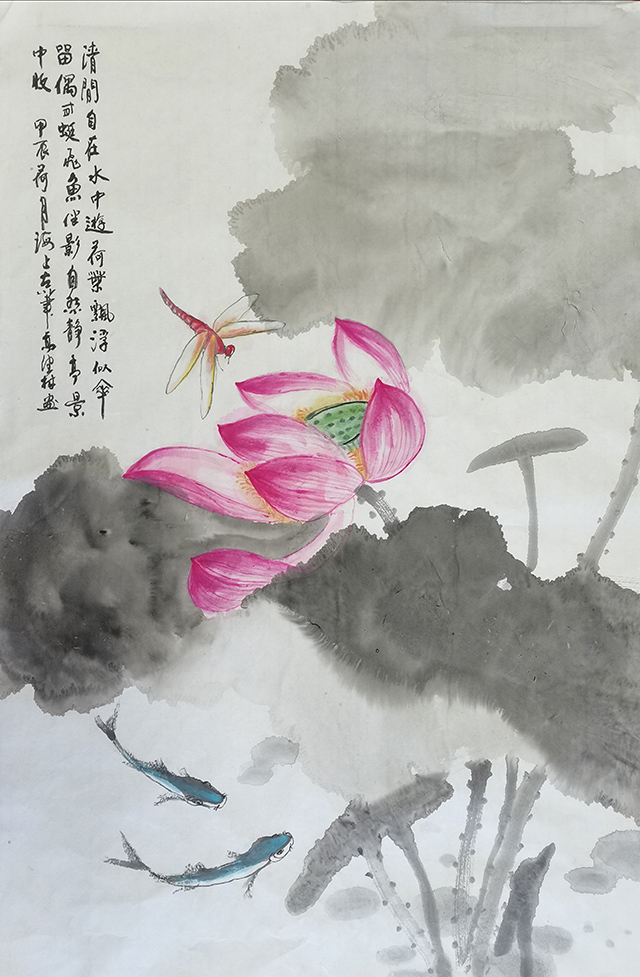 清閒自在水中遊荷葉飄浮似傘
留偶尔蜓飛魚伴影自然靜亭景
中收 甲辰荷月海上古華画